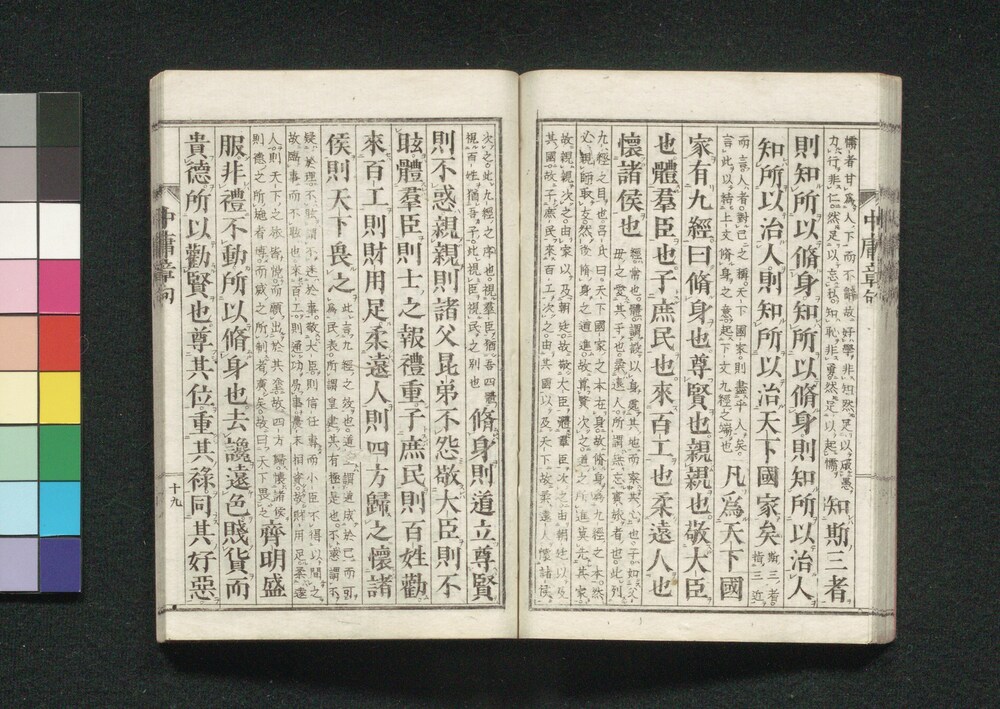 中庸章句
懦者甘爲人下而不辭故好學非知然足以破愚
力行非仁然足以忘私知恥非勇然足以起懦
知斯三者
則知所以脩身知所以脩身則知所以治人
知所以治人則知所以治天下國家矣
斯三者
指三近
而言人者對己之稱天下國家則盡乎人矣
言此以結上文脩身之意起下文九經之端也
凡爲天下國
家有九經曰脩身也尊賢也親親也敬大臣
也體羣臣也子庶民也來百工也柔遠人也
懷諸侯也
經常也體謂設以身處其地而察其心也子如父
母之愛其子也柔遠人所謂無忘賓旅者也此列
九經之目也呂氏曰天下國家之本在身故脩身爲九經之本然
必親師取友然後脩身之道進故尊賢次之道之所進莫先其家
故親親次之由家以及朝廷故敬大臣體羣臣次之由朝廷以及
其國故子庶民來百工次之由其國以及天下故柔遠人懷諸侯
次之此九經之序也視羣臣猶吾四體
視百姓猶吾子此視臣視民之別也
脩身則道立尊賢
則不惑親親則諸父昆弟不怨敬大臣則不
眩體羣臣則士之報禮重子庶民則百姓勸
來百工則財用足柔遠人則四方歸之懷諸
侯則天下畏之
此言九經之效也道立謂道成於己而可
爲民表所謂皇建其有極是也不惑謂不
疑於理不眩謂不迷於事敬大臣則信任專而小臣不得以間之
故臨事而不眩也來百工則通功易事農末相資故財用足柔遠
人則天下之旅皆悅而願出於其塗故四方歸懷諸侯
則德之所施者博而威之所制者廣矣故曰天下畏之
齊明盛
服非禮不動所以脩身也去讒遠色賤貨而
貴德所以勸賢也尊其位重其祿同其好惡
中庸章句
十九